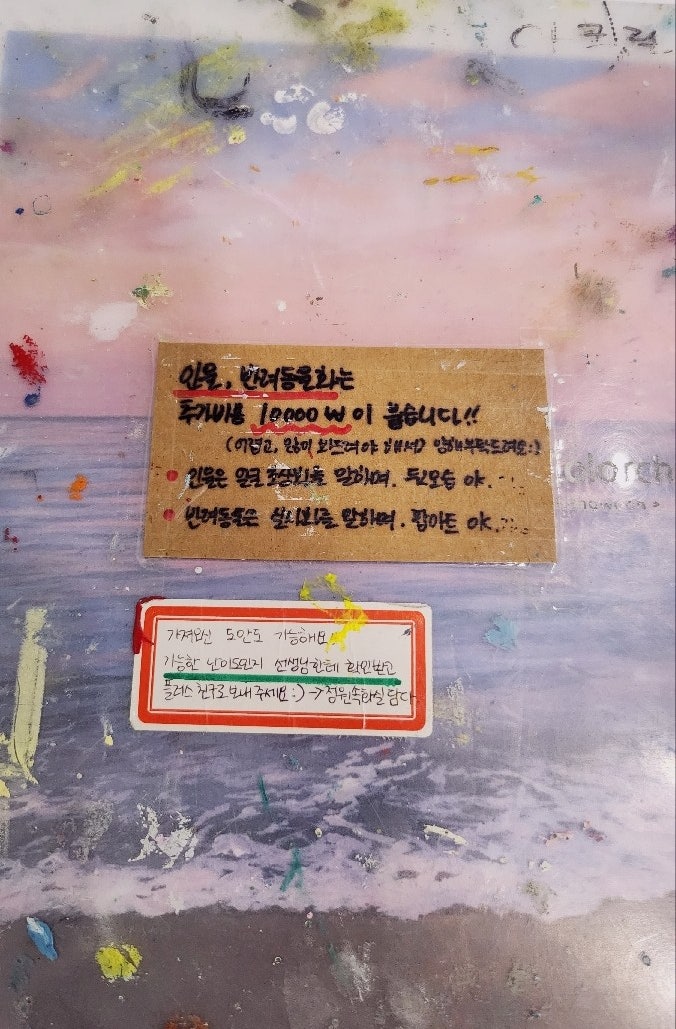 인물, 반려동물화는
추가비용 10000 ₩ 이 붙습니다!!
(어렵고, 많이 봐드려야 해서) 양해부탁드려요:)
인물은 얼굴 초상화를 말하며, 뒷모습 아.
반려동물은 실사화를 말하며, 팝아트 아.
가져오신 도안도 가능해요
가능한 난이도인지 선생님한테 확인받고
플러스친구로 보내주세요 :) → 정원속화실담다